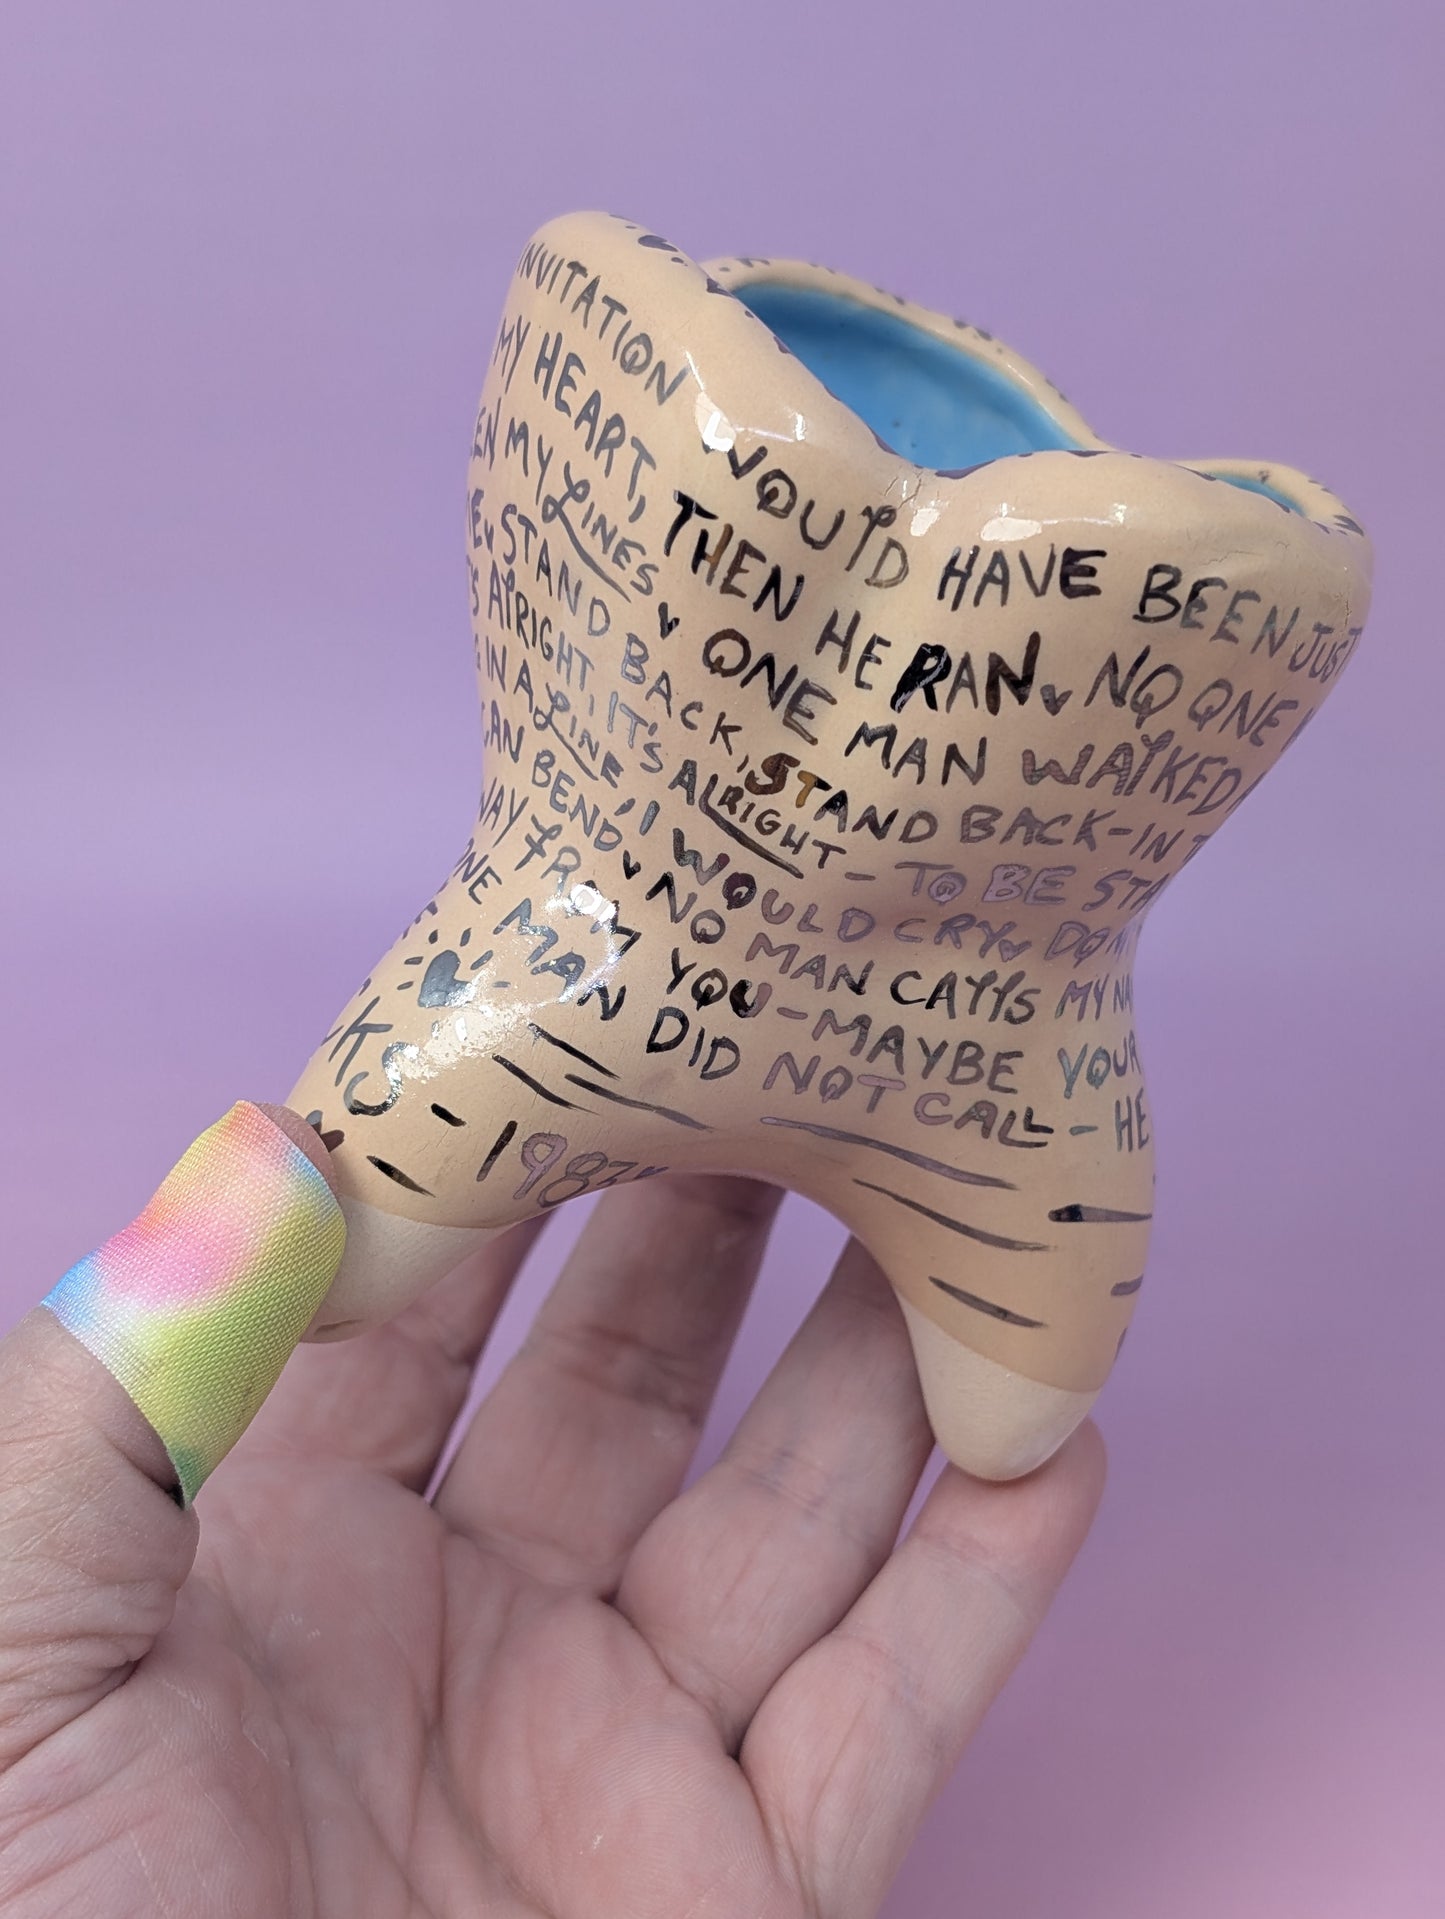 INVITATION WOULD HAVE BEEN JUST
MY HEART, THEN HE RAN. NO ONE
MY LINES ONE MAN WALKED
STAND BACK, STAND BACK-IN
ALRIGHT, IT'S ALRIGHT - TO BE STA
IN A LINE, I WOULD CRY DON'T
CAN BEND NO MAN CALLS MY NA
WAY FROM YOU - MAYBE YOUR
ONE MAN DID NOT CALL - HE
CKS - 1983